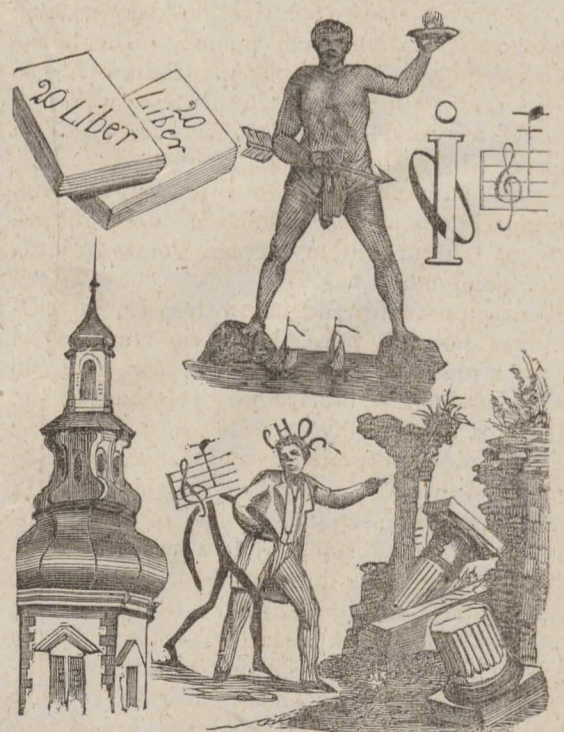 20 Liber
20
Liber
i
CHOC